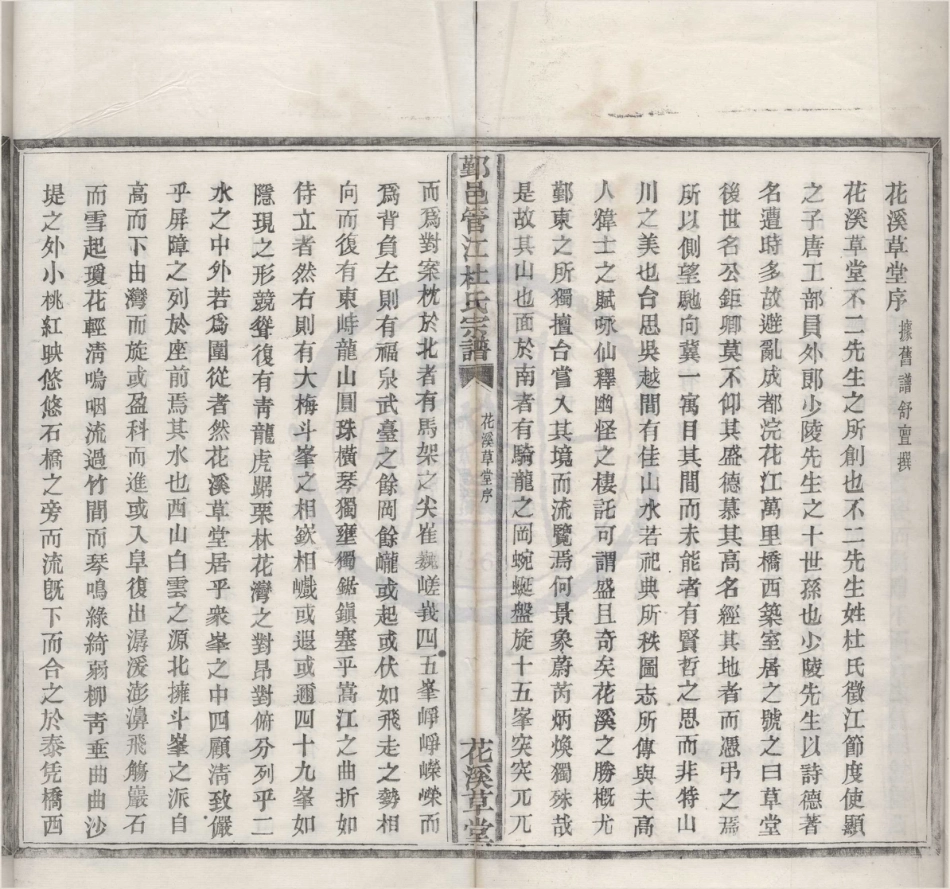 花溪草堂序 據舊譜舒亶撰
花溪草堂不二先生之所創也不二先生姓杜氏徵江節度使顯
之子唐工部員外郎少陵先生之十世孫也少陵先生以詩德著
名遭時多故避亂成都浣花江萬里橋西築室居之號之曰草堂
後世名公鉅卿莫不仰其盛德慕其高名經其地者而憑弔之焉
所以側望馳向冀一寓目其間而未能者有賢哲之思而非特山
川之美也台思吳越間有佳山水若祀典所秩圖志所傳與夫高
人偉士之賦咏仙釋幽怪之棲託可謂盛且奇矣花溪之勝概尤
鄞東之所獨擅台嘗入其境而流覽焉何景象蔚芮炳煥獨殊哉
是故其山也面於南者有騎龍之岡蜿蜒盤旋十五峯突突兀兀
鄞邑管江杜氏宗譜 花溪草堂序 花溪草堂
而爲對案枕於北者有馬架之尖崔巍嵯峩四五峯崢崢嶸嶸而
爲背負左則有福泉武臺之餘岡餘巃或起或伏如飛走之勢相
向而復有東峙龍山圓珠橫琴獨壅獨鋸鎭塞乎嵩江之曲折如
侍立者然右則有大梅斗峯之相嶔相巇或遐或邇四十九峯如
隱現之形競聳復有靑龍虎踞栗林花灣之對昂對俯分列乎二
水之中外若爲圍從者然花溪草堂居乎衆峯之中四顧淸致儼
乎屏障之列於座前焉其水也西山白雲之源北擁斗峯之派自
高而下由灣而旋或盈科而進或入阜復出潺湲澎濞飛觴巖石
而雪起瓊花輕淸嗚咽流過竹間而琴鳴綠綺弱柳靑垂曲曲沙
堤之外小桃紅映悠悠石橋之旁而流旣下而合之於泰凭橋西